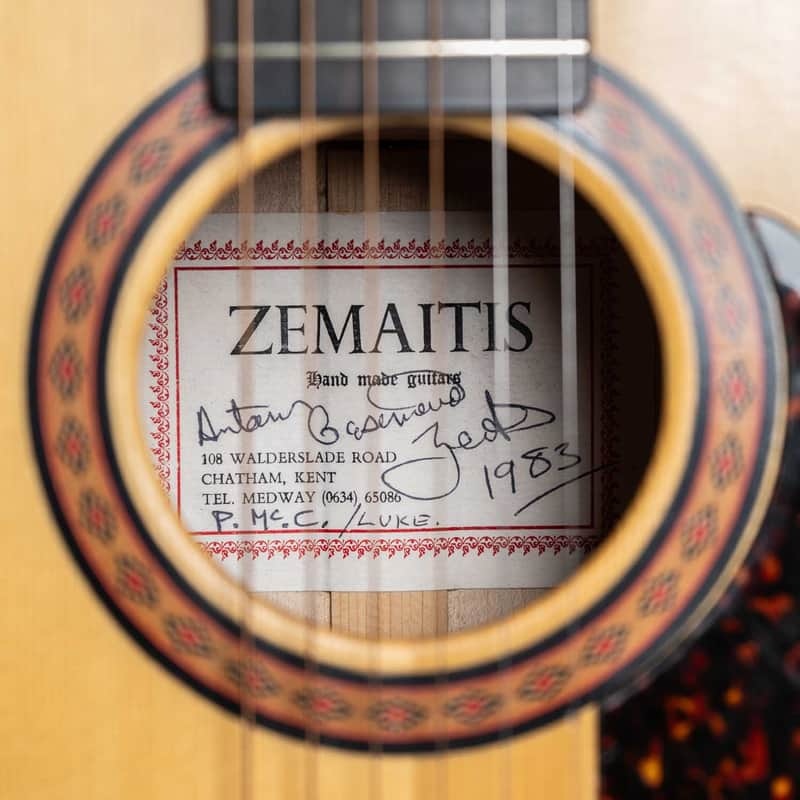 ZEMAITIS
Hand made guitars
Antony Casimere Zemaitis
108 WALDERSLADE ROAD
CHATHAM, KENT 1983
TEL. MEDWAY (0634) 65086
P. McC. /LUKE.